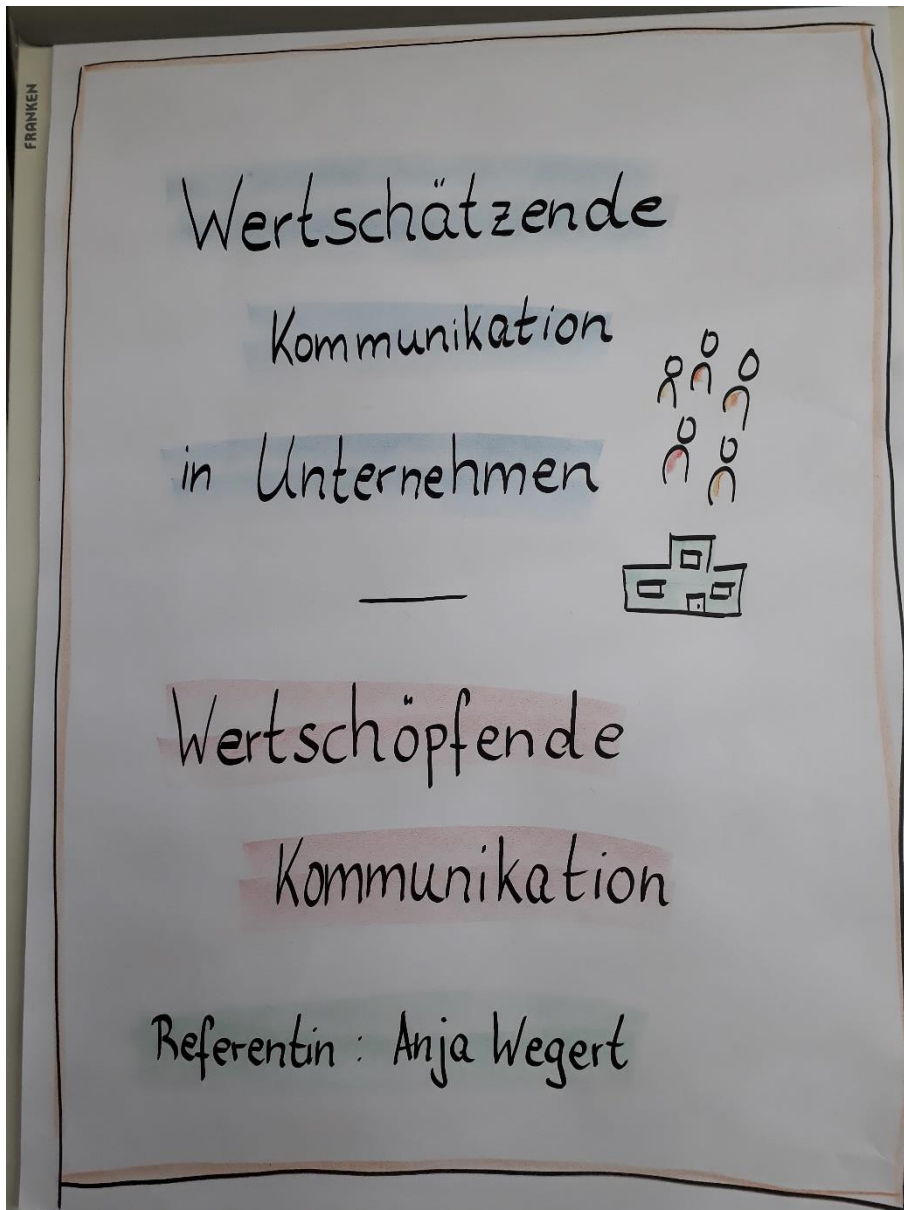 FRANKEN
Wertschätzende
Kommunikation
in Unternehmen
—
Wertschöpfende
Kommunikation
Referentin : Anja Wegert